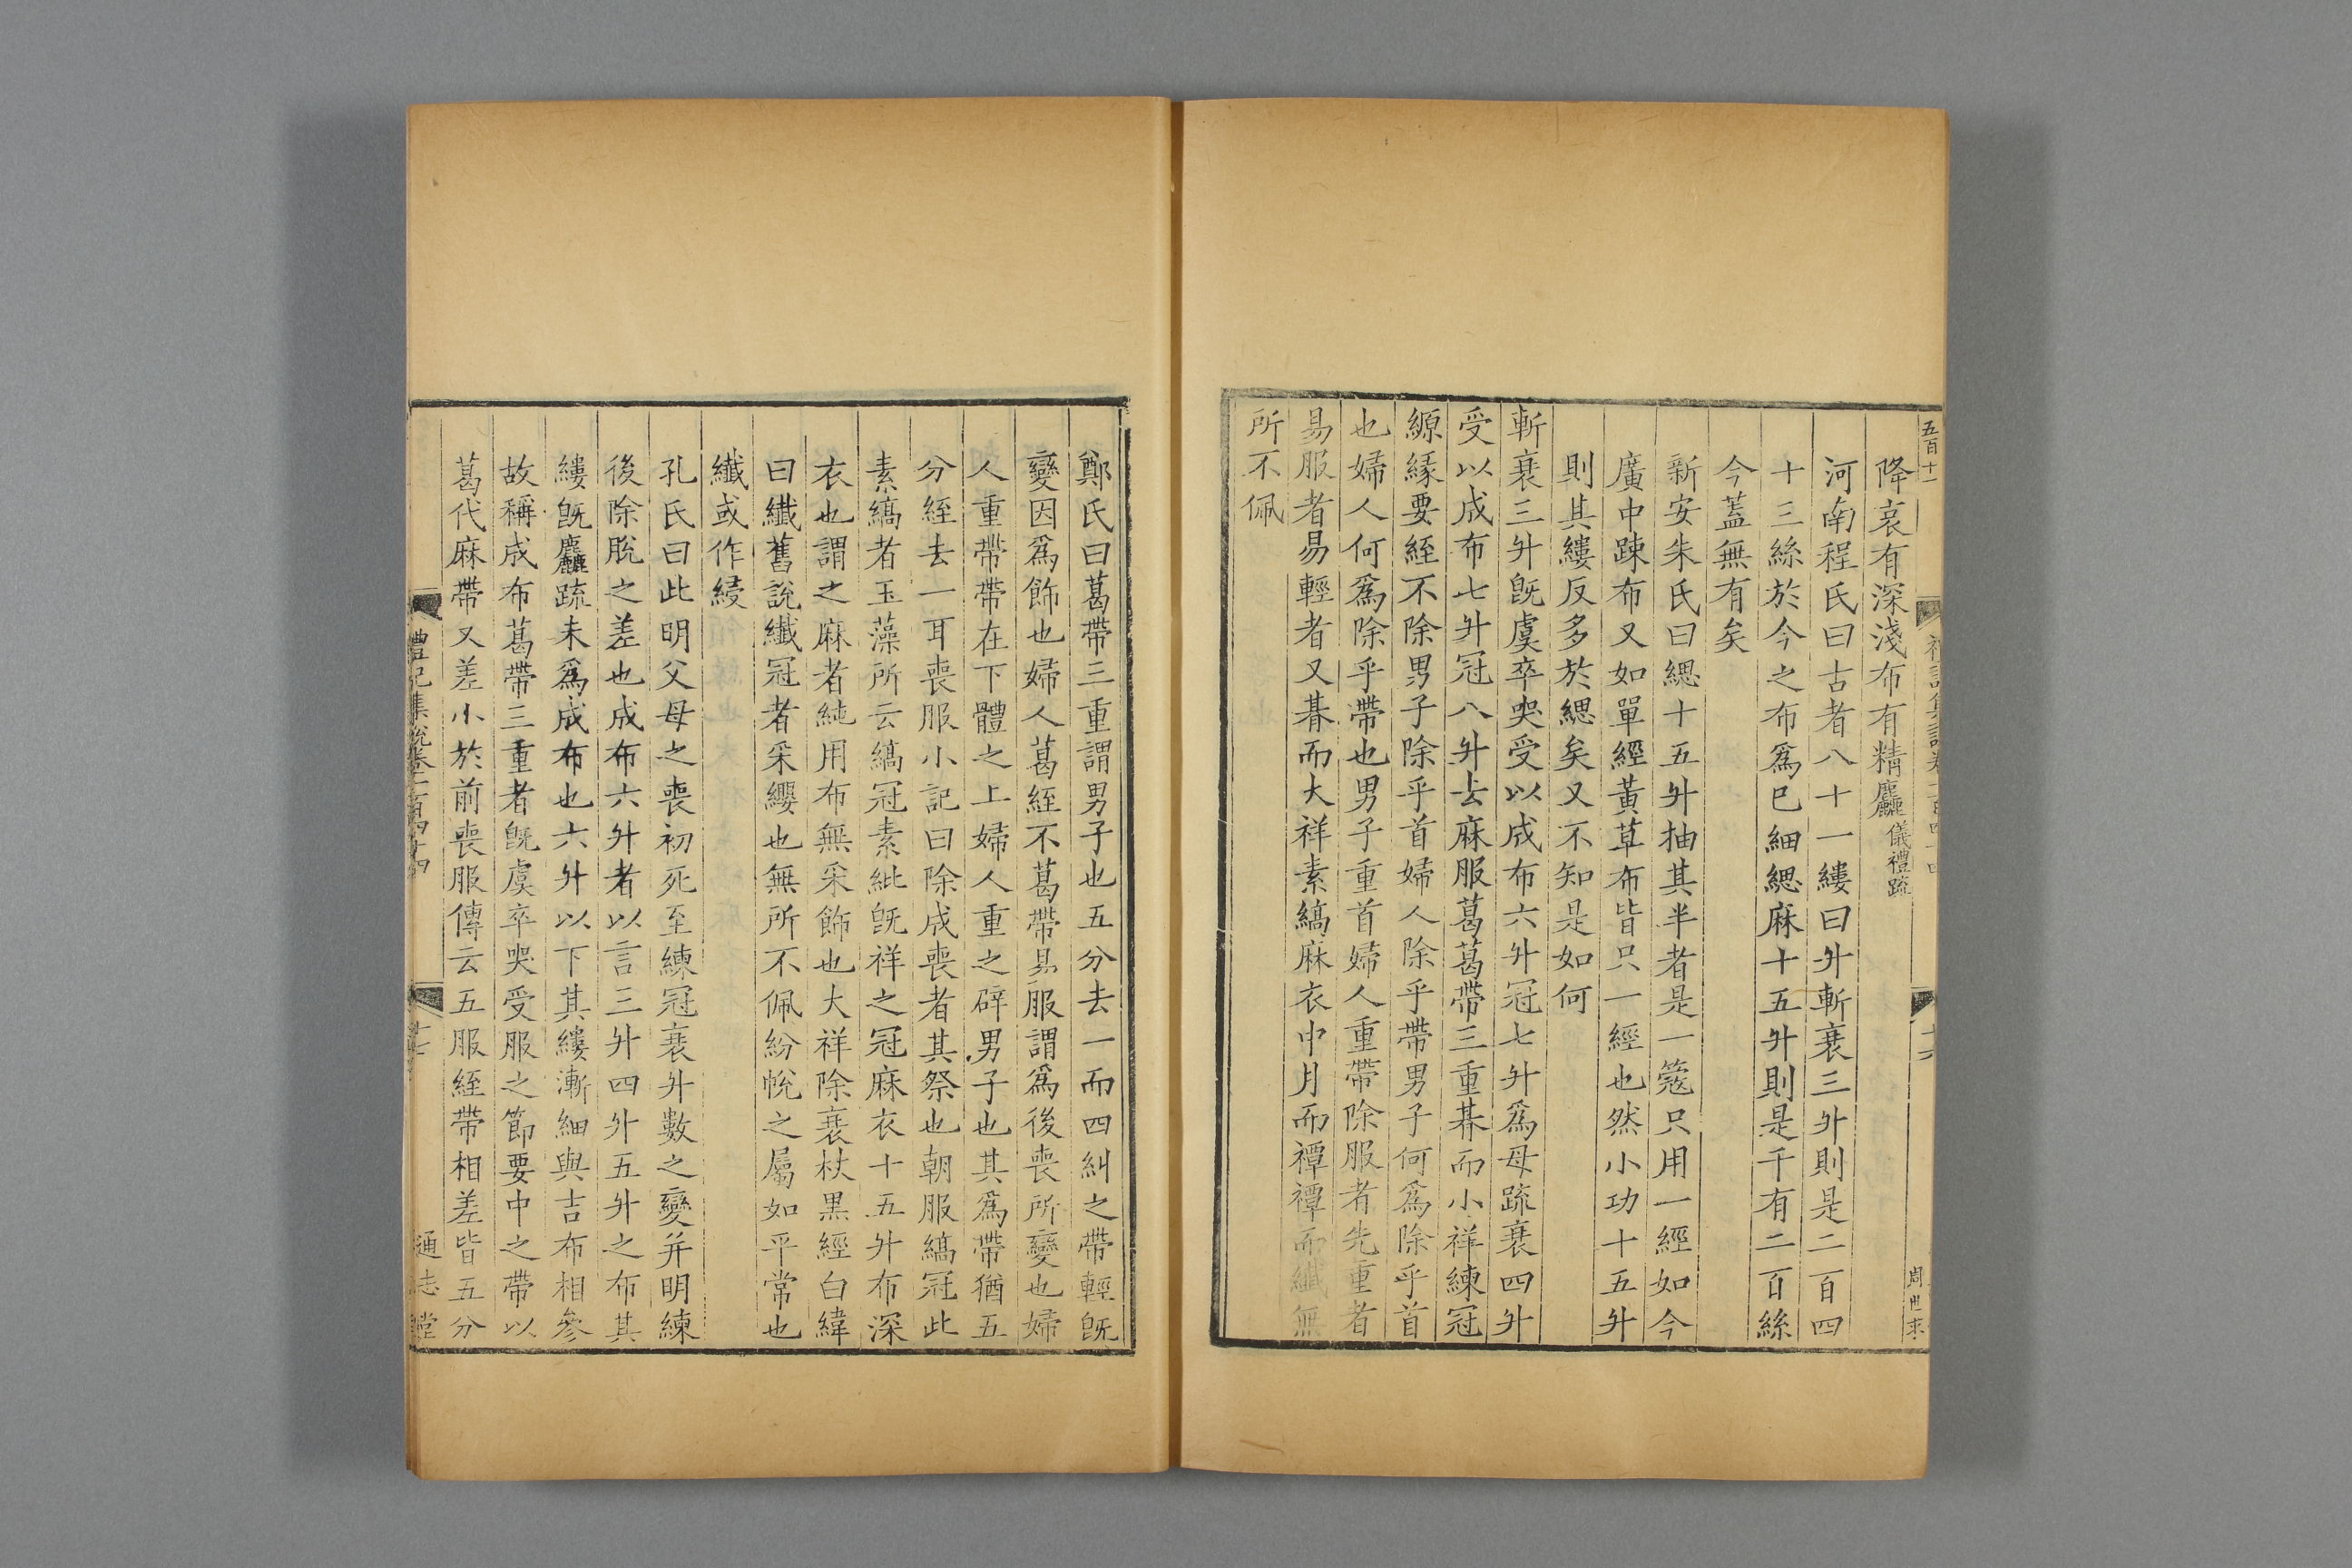 五百十一
降哀有深淺布有精麤儀禮疏
河南程氏曰古者八十一縷曰升斬衰三升則是二百四
十三絲於今之布爲已細緦麻十五升則是千有二百絲
今蓋無有矣
新安朱氏曰緦十五升抽其半者是一簆只用一經如今
廣中疎布又如單經黃草布皆只一經也然小功十五升
則其縷反多於緦矣又不知是如何
斬衰三升旣虞卒哭受以成布六升冠七升爲母疏衰四升
受以成布七升冠八升去麻服葛葛帶三重朞而小祥練冠
縓緣要絰不除男子除乎首婦人除乎帶男子何爲除乎首
也婦人何爲除乎帶也男子重首婦人重帶除服者先重者
易服者易輕者又朞而大祥素縞麻衣中月而禫禫而纖無
所不佩
周世來
鄭氏曰葛帶三重謂男子也五分去一而四糾之帶輕旣
變因爲飾也婦人葛絰不葛帶易服謂爲後喪所變也婦
人重帶帶在下體之上婦人重之辟男子也其爲帶猶五
分絰去一耳喪服小記曰除成喪者其祭也朝服縞冠此
素縞者玉藻所云縞冠素紕旣祥之冠麻衣十五升布深
衣也謂之麻者純用布無采飾也大祥除衰杖黑經白緯
曰纖舊說纖冠者采纓也無所不佩紛帨之屬如平常也
纖或作綅
孔氏曰此明父母之喪初死至練冠衰升數之變并明練
後除脫之差也成布六升者以言三升四升五升之布其
縷旣麤疏未爲成布也六升以下其縷漸細與吉布相參
故稱成布葛帶三重者旣虞卒哭受服之節要中之帶以
葛代麻帶又差小於前喪服傳云五服絰帶相差皆五分
禮記集說卷一百四十四
十七
通志堂